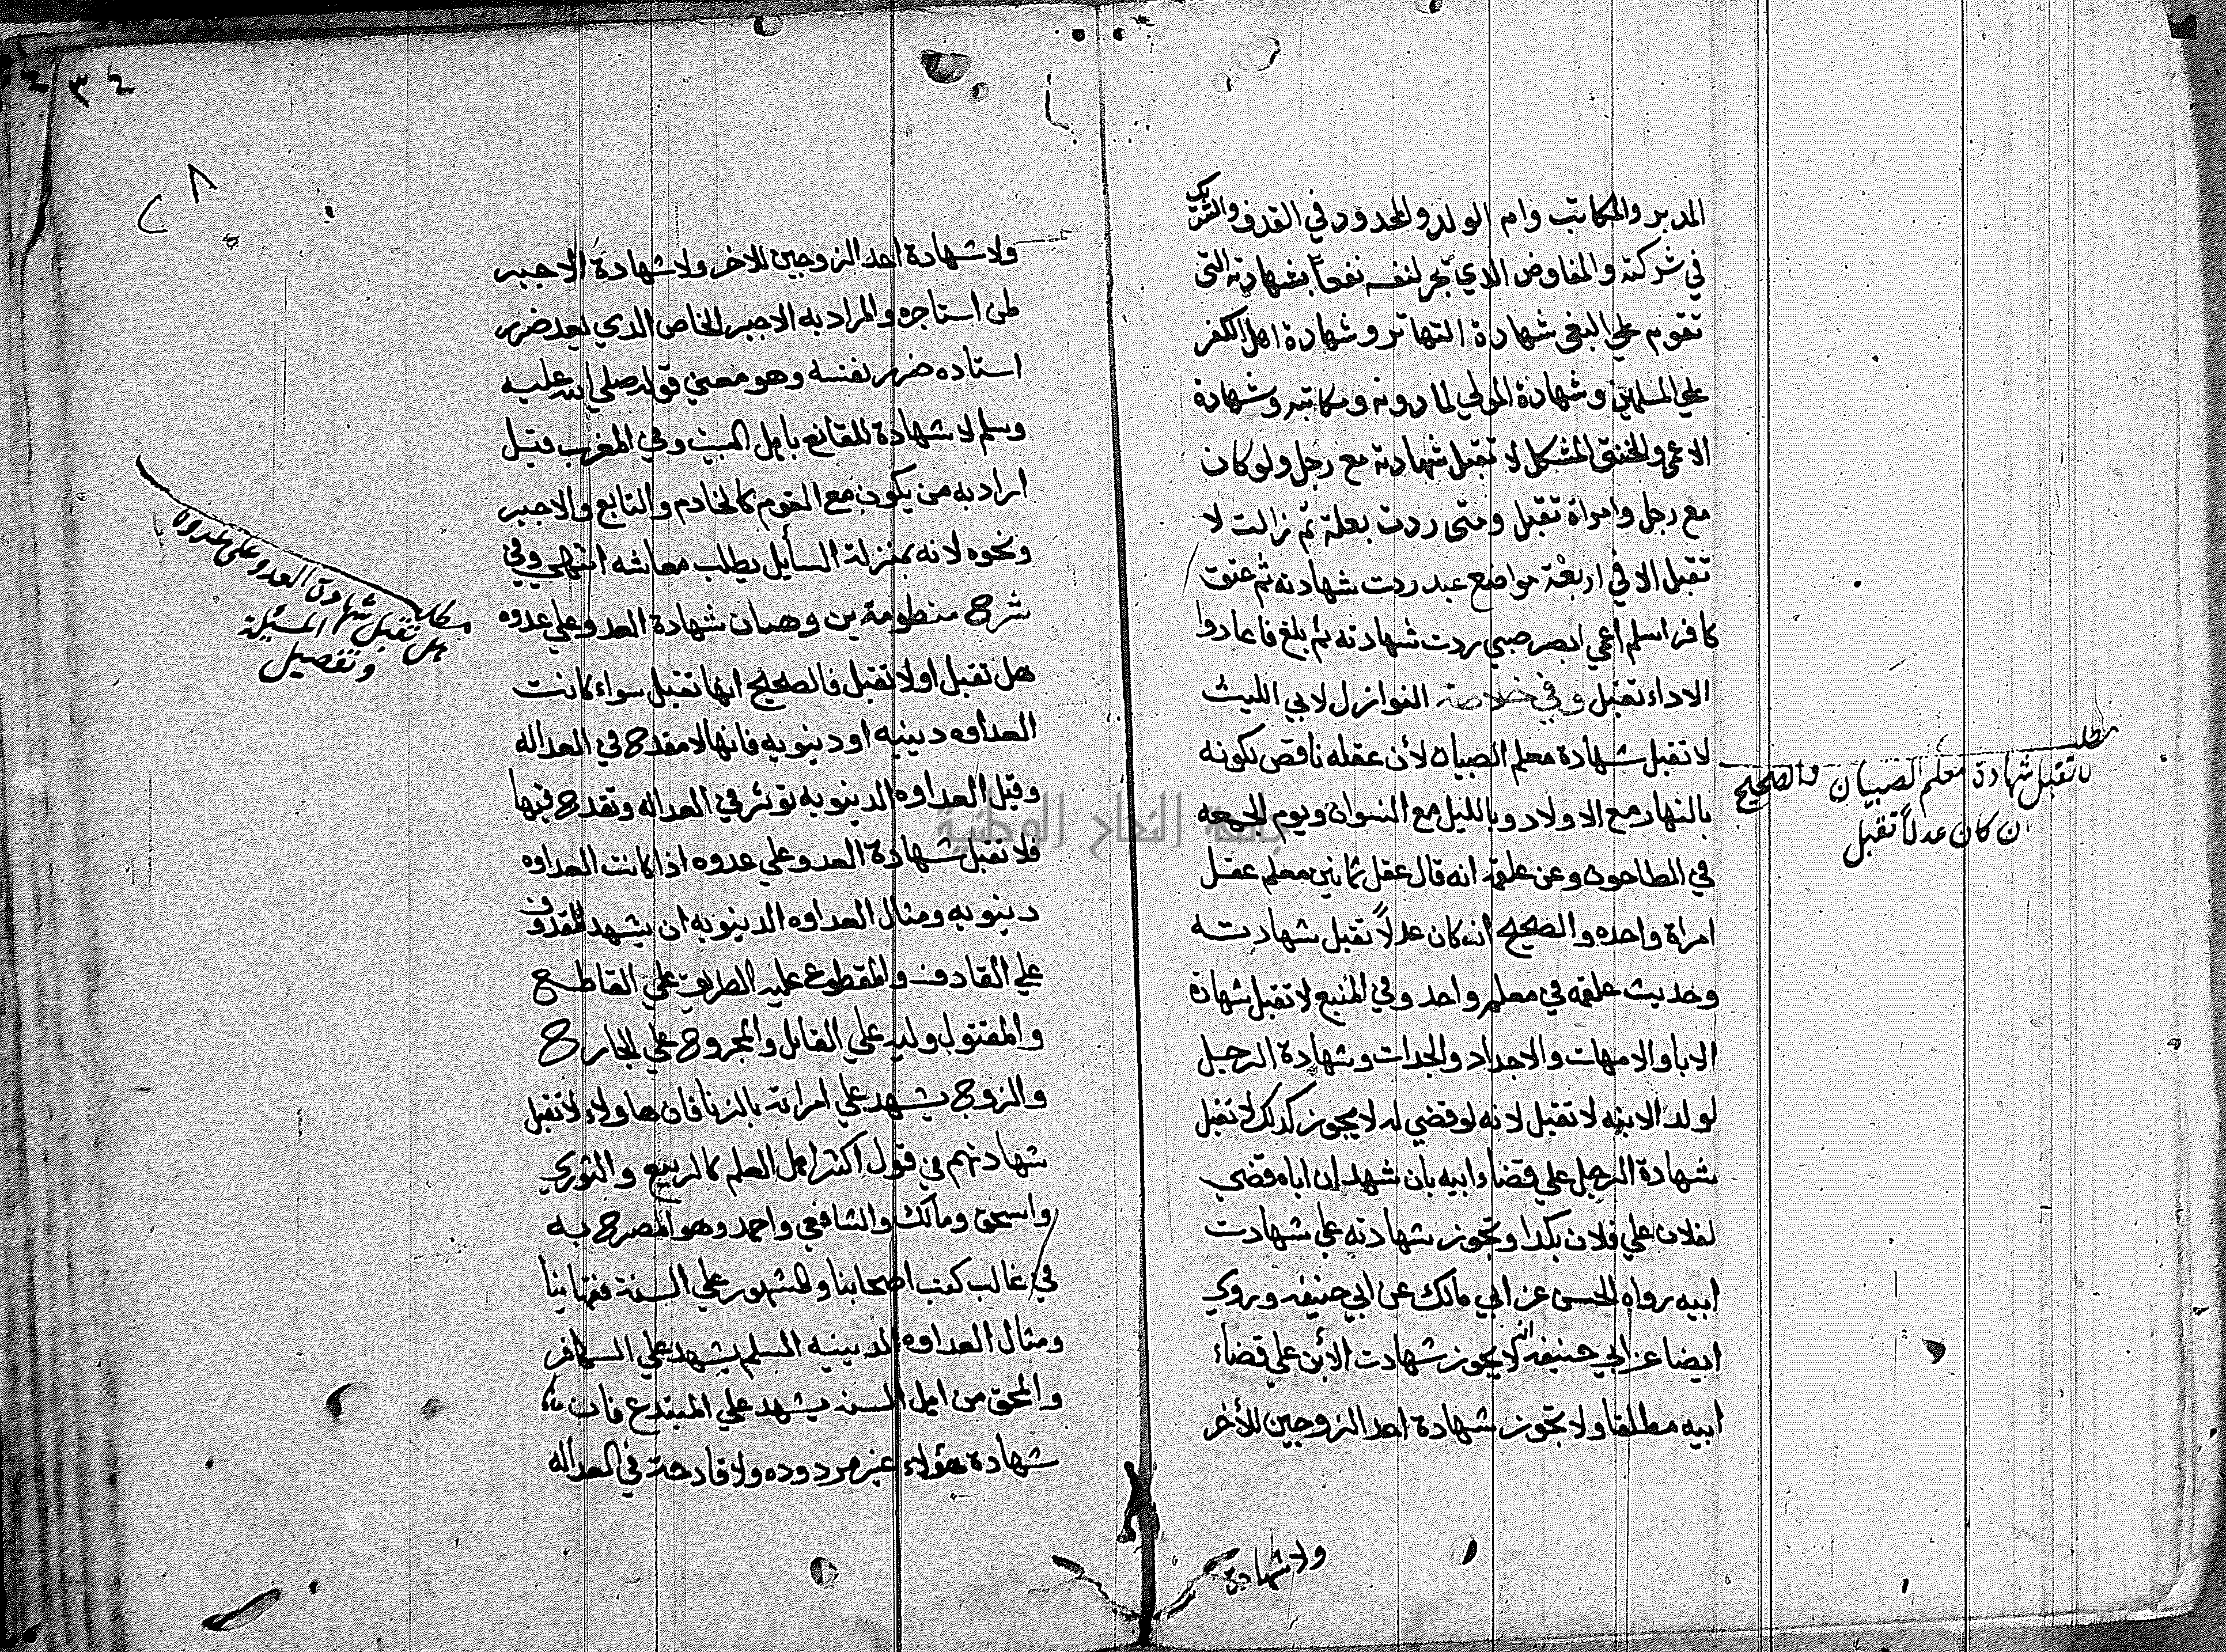 المدبر والمكاتب وام الولد والمحدود في القدف والشريك
في شركته والمفاوض الدي يجر لنفسه نفعاً بشهادته التي
تقوم علي النفي شهادة التهاتر وشهادة اهل الكفر
علي المسلمين وشهادة المولي لمادونه ومكاتبه وشهادة
الاعمى والخنثى المشكل لا تقبل شهادته مع رجل ولو كان
مع رجل وامراة تقبل ومتى ردت بعلة ثم زالت لا
تقبل الا في اربعة مواضع عبد ردت شهادته ثم عتق
كافر اسلم اعمي ابصر صبي ردت شهادته ثم بلغ فاعادوا
الاداء تقبل وفي خلاصة النوازل لابي الليث
لا تقبل شهادة معلم الصبيان لأن عقله ناقص لكونه
بالنهار مع الاولاد وبالليل مع النسوان ويوم الجمعه
في الطاحون وعن علقمة انه قال عقل ثمانين معلم عقل
امراة واحده والصحيح انه كان عدلاً تقبل شهادته
وحديث علقمه في معلم واحد وفي المنبع لا تقبل شهادة
الابا والامهات والاجداد والجدات وشهادة الرجل
لولد الابنه لا تقبل لانه لو قضي له لا يجوز كذلك لا تقبل
شهادة الرجل علي قضاء ابيه بان شهد ان اباه قضي
لفلان علي فلان بكدا وتجوز شهادته علي شهادت
ابيه رواه الحسن عن ابي مالك عن ابي حنيفه وروي
ايضا عن ابي حنيفه انه لا يجوز شهادت الأبن علي قضاء
ابيه مطلقا ولا تجوز شهادة احد الزوجين للأخر
ولا شهادة
مطلب
لا تقبل شهادة معلم الصبيان والصحيح
ان كان عدلاً تقبل
٢٣٤
ولا شهادة احد الزوجين للاخر ولا شهادة الاجير
لمن استاجره والمراد به الاجير الخاص الدي يعد ضرر
استاده ضرر نفسه وهو معني قوله صلي الله عليه
وسلم لا شهادة للقانع باهل البيت وفي المغرب قيل
اراد به من يكون مع القوم كالخادم والتابع والاجير
ونحوه لانه بمنزلة السأيل يطلب معاشه انتهي وفي
شرح منظومة بن وهبان شهادة العدو علي عدوه
هل تقبل او لا تقبل فالصحيح انها تقبل سواء كانت
العداوه دينيه او دينويه فانها لا تقدح في العداله
وقيل العداوه الدينويه تؤثر في العداله وتقدح فيها
فلا تقبل شهادة العدو علي عدوه اذا كانت العداوه
دينويه ومثال العداوه الدينويه ان يشهد المقدوف
علي القادف والمقطوع عليه الطريق علي القاطع
والمقتول وليه علي القاتل والمجروح علي الجارح
والزوج يشهد علي امراته بالزنا فان هاولاء لا تقبل
شهادتهم في قول اكثر اهل العلم كالربيع والثوري
واسحق ومالك والشافعي واحمد وهو المصرح به
في غالب كتب اصحابنا والمشهور علي السنة فقهاينا
ومثال العداوه الدينيه المسلم يشهد علي الكافر
والمحق من اهل السنه يشهد علي المبتدع فان
شهادة هؤلاء غير مردوده ولا قادحة في العداله
مطلب
هل تقبل شهادة العدو على عدوه
وتفصيل المسئلة
جامعة النجاح الوطنية